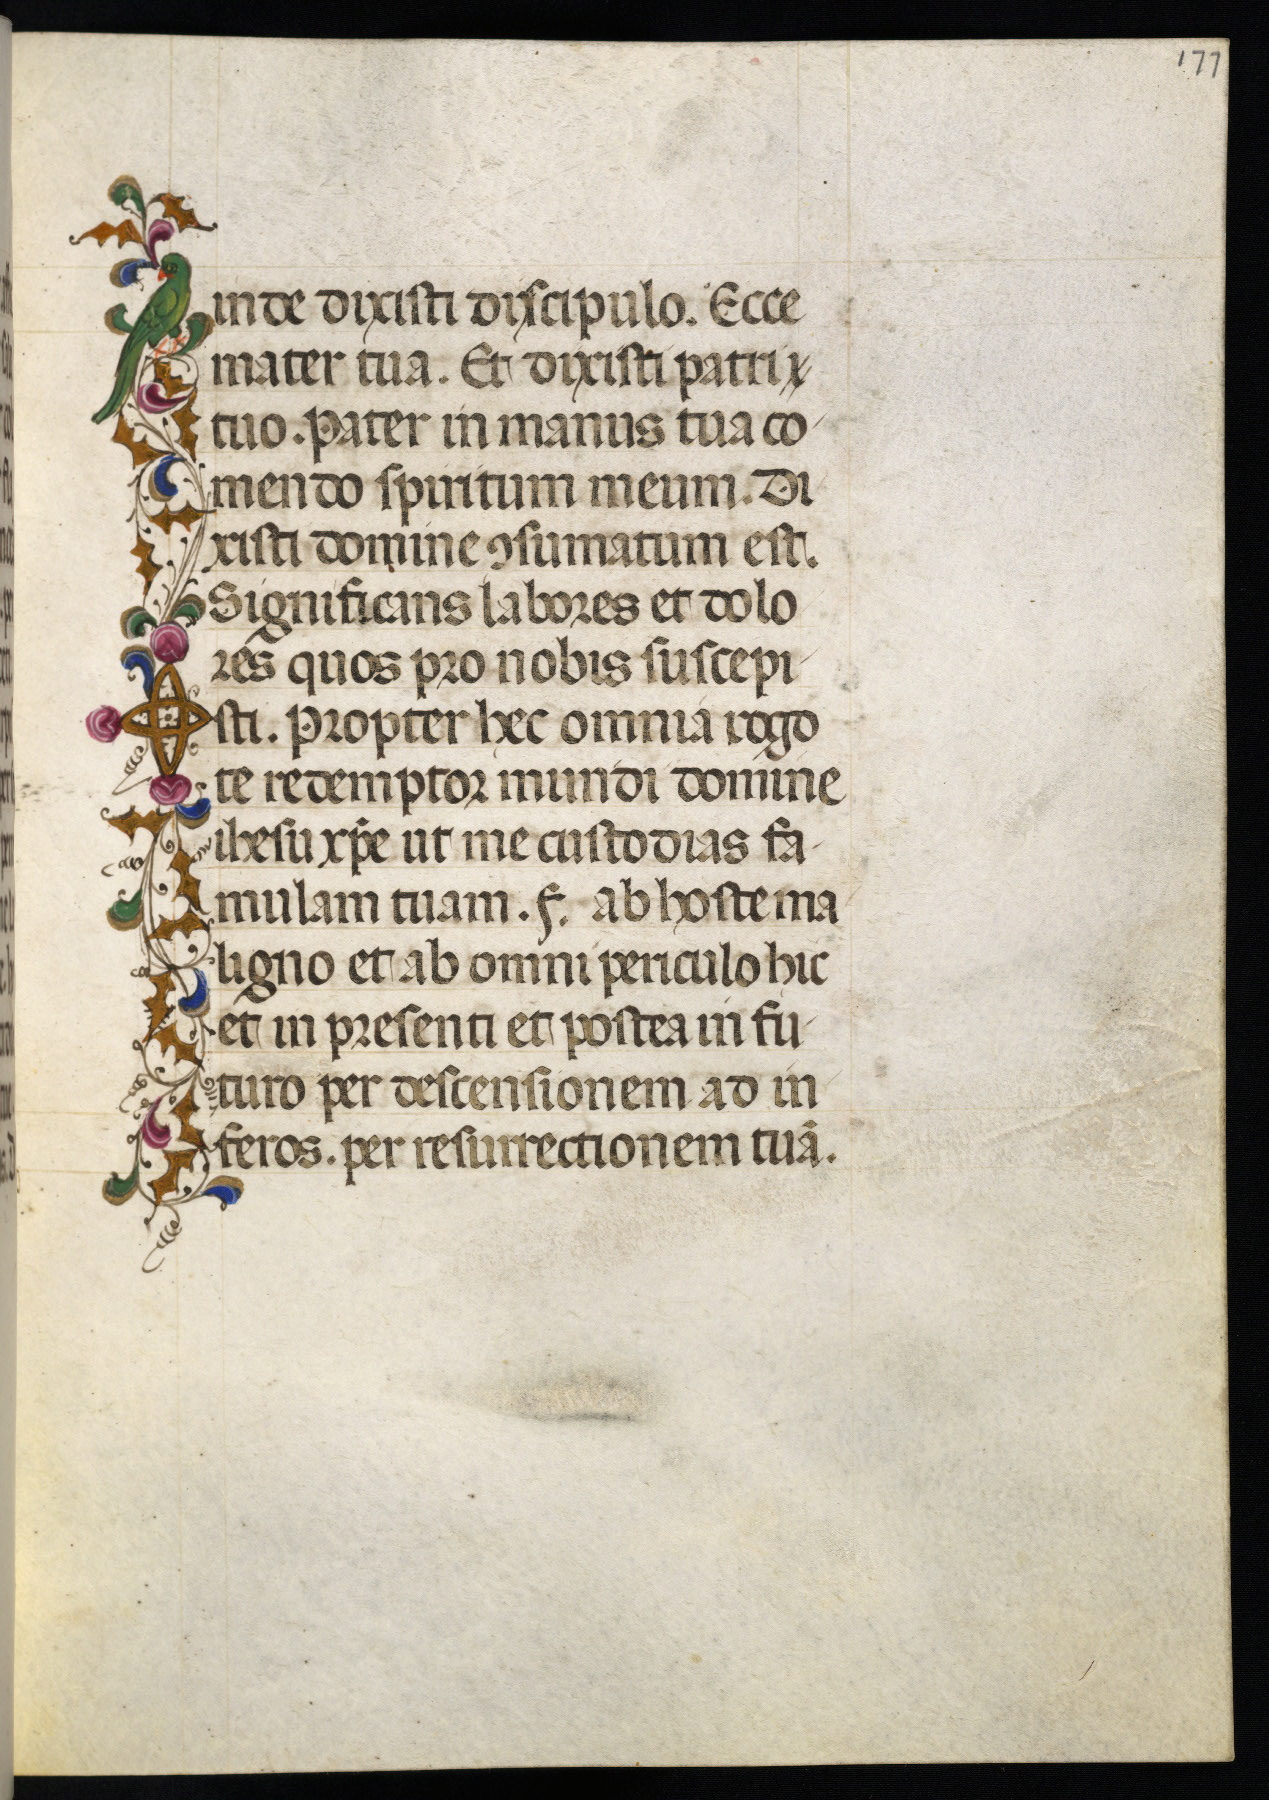 177
inde dixisti discipulo. Ecce
mater tua. Et dixisti patri
tuo. Pater in manus tua co
mendo spiritum meum. Di
xisti domine ꝯsumatum est.
Significans labores et dolo
res quos pro nobis suscepi
sti. Propter hec omnia rogo
te redemptor mundi domine
ihesu xp̄e ut me custodias fa
mulam tuam. f. ab hoste ma
ligno et ab omni periculo hic
et in presenti et postea in fu
turo per descensionem ad in
feros. per resurrectionem tuā.